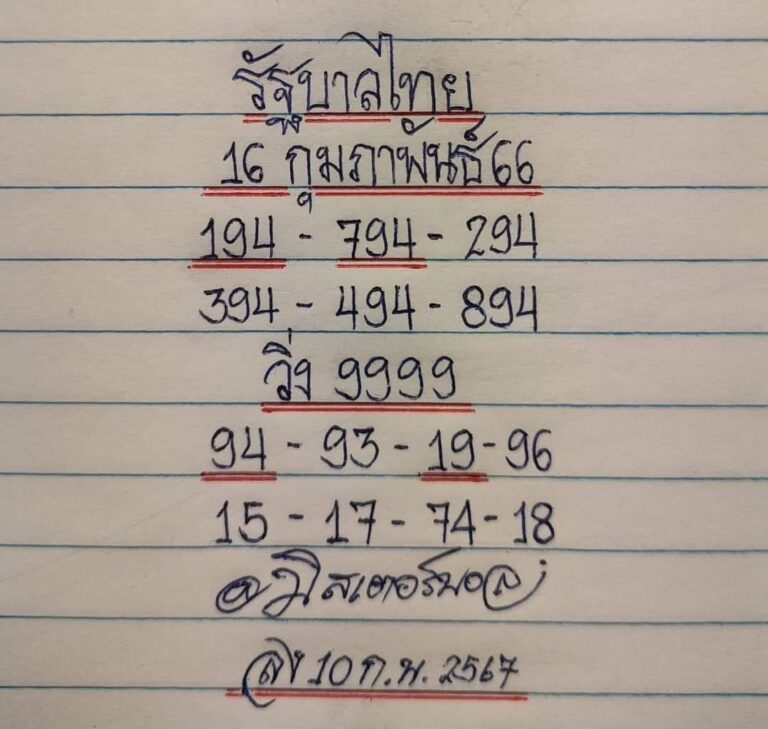 รัฐบาลไทย
16 กุมภาพันธ์ 66
194 - 794 - 294
394 - 494 - 894
วิ่ง 9999
94 - 93 - 19 - 96
15 - 17 - 74 - 18
มิสเตอร์บอล
ลง 10 ก.พ. 2567